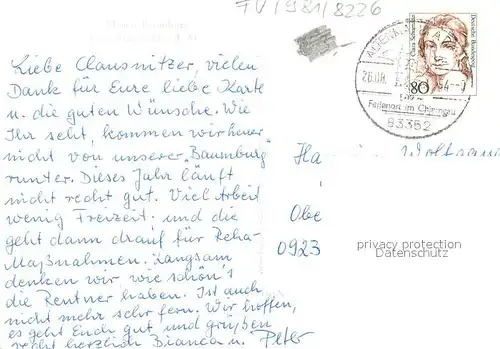 FV/981/8226
Liebe Clausnitzer, vielen
Dank für Eure liebe Karte
u. die guten Wünsche. Wie
Ihr seht, kommen wir heuer
nicht von unserer „Baumburg"
runter. Dieses Jahr läuft
nicht recht gut. Viel Arbeit
wenig Freizeit und die
geht dann drauf für Reha-
Maßnahmen. Langsam
denken wir wie schön's
die Rentner haben. Ist auch
nicht mehr sehr fern. Wir hoffen,
es geht Euch gut und grüßen
recht herzlich Bianca u. Peter
Deutsche Bundespost
Clara Schumann
80
26.08. 94
Ferienort im Chiemgau
83352
Obe
0923
privacy protection
Datenschutz